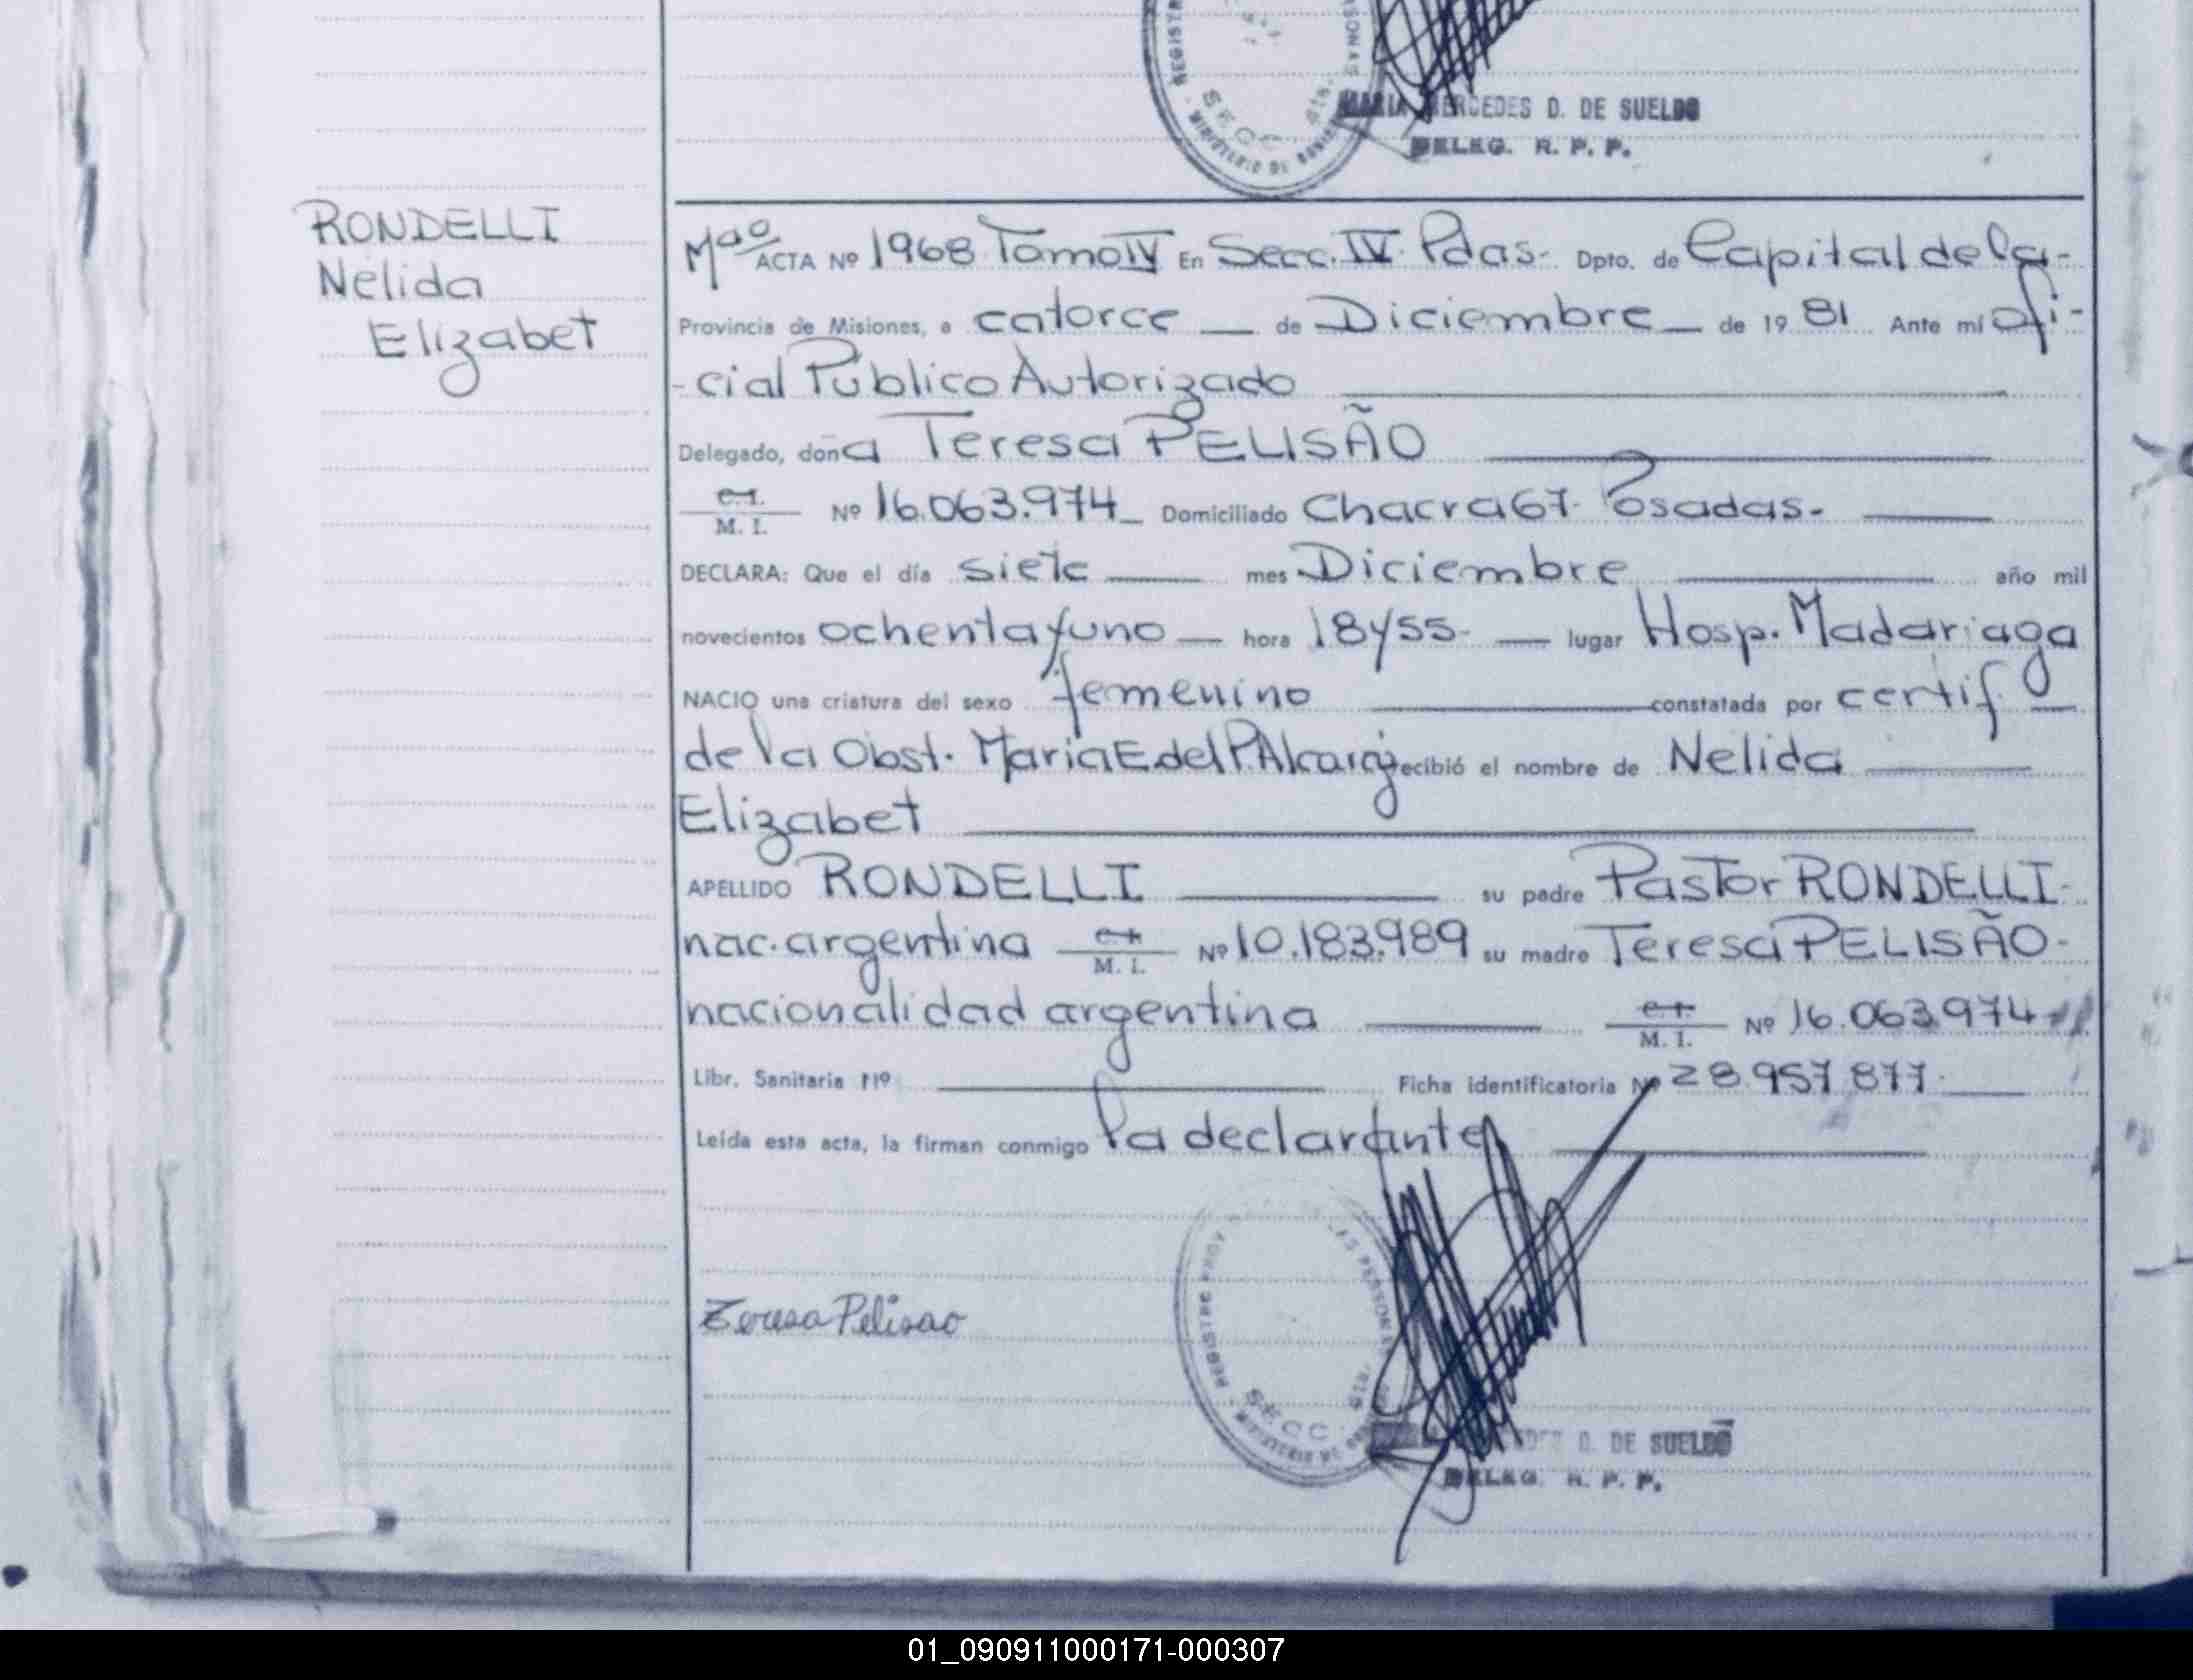 MARIA MERCEDES D. DE SUELDO
DELEG. R. P. P.
RONDELLI
Nélida
Elizabet
ACTA Nº 1968 Tomo IV En Secc. IV. Pdas- Dpto. de Capital de la-
Provincia de Misiones, a catorce — de Diciembre — de 19 81 Ante mí ofi-
-cial Público Autorizado
Delegado, doña Teresa PELISÃO
M. I. Nº 16.063.974 Domiciliado Chacra 67- Posadas.-
DECLARA: Que el día siete mes Diciembre año mil
novecientos ochenta y uno — hora 18 y 55- — lugar Hosp. Madariaga
NACIO una criatura del sexo femenino constatada por certif.
de la Obst. Maria E. del P. Alcaraz recibió el nombre de Nelida
Elizabet
APELLIDO RONDELLI su padre Pastor RONDELLI-
nac. argentina M. I. Nº 10.183.989 su madre Teresa PELISÃO-
nacionalidad argentina M. I. Nº 16.063.974
Libr. Sanitaria Nº Ficha identificatoria Nº 28.957.877-
Leída esta acta, la firman conmigo la declarante
Teresa Pelisao
SECC
D. DE SUELDO
DELEG. R. P. P.
01_090911000171-000307